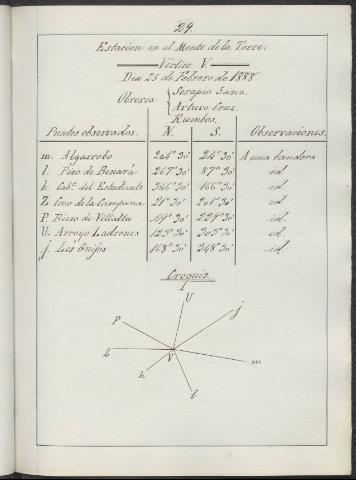 29.
Estacion en el Monte de la Torre.
Vértice V.
Dia 25 de Febrero de 1888
Obreros. { Serapio Sanz.
Arturo Cruz.
Rumbos.
Puntos observados. N. S. Observaciones.
m. Algarrobo 204°30' 24°30' A una bandera
l. Pico de Benará 267°30' 87°30' id
k. Cabª. del Estudiante 346°30' 166°30' id
Z. Cono de la Campana 21°30' 201°30' id
P. Bézo de Villalta 49°30' 229°30' id
U. Arroyo Ladrones 123°30' 303°30' id
j. Los Guijos 168°30' 348°30' id
Croquis.
U
j
P
Z
V
m
k
l